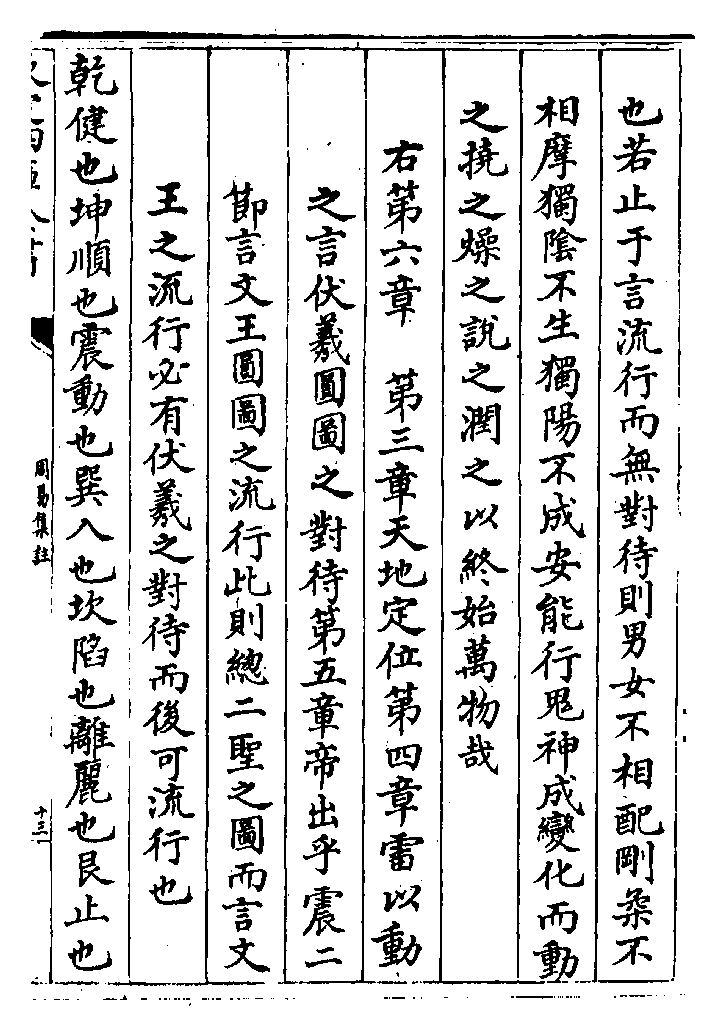 也若止于言流行而無對待則男女不相配剛柔不
相摩獨陰不生獨陽不成安能行鬼神成變化而動
之撓之燥之說之潤之以終始萬物哉
右第六章　第三章天地定位第四章雷以動
之言伏羲圓圖之對待第五章帝出乎震二
節言文王圓圖之流行此則總二聖之圖而言文
王之流行必有伏羲之對待而後可流行也
乾健也坤順也震動也巽入也坎陷也離麗也艮止也
周易集註
十三